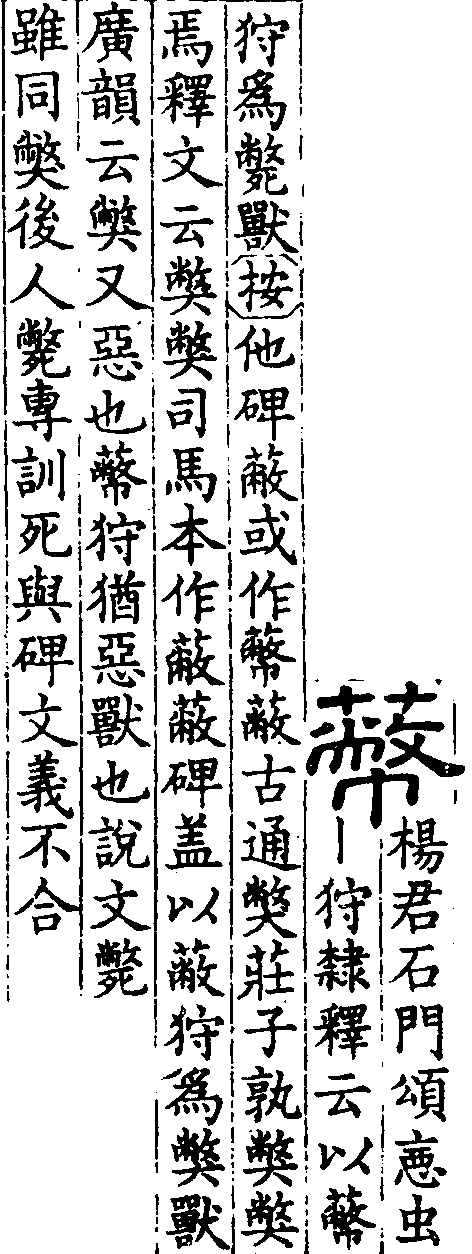 幣
楊君石門頌𢙣虫
丨狩隸釋云以幣
狩爲斃獸按他碑蔽或作幣蔽古通獘莊子孰獘獘
焉釋文云獘獘司馬本作蔽蔽碑盖以蔽狩爲獘獸
廣韻云獘又惡也幣狩猶惡獸也說文斃
雖同獘後人斃專訓死與碑文義不合